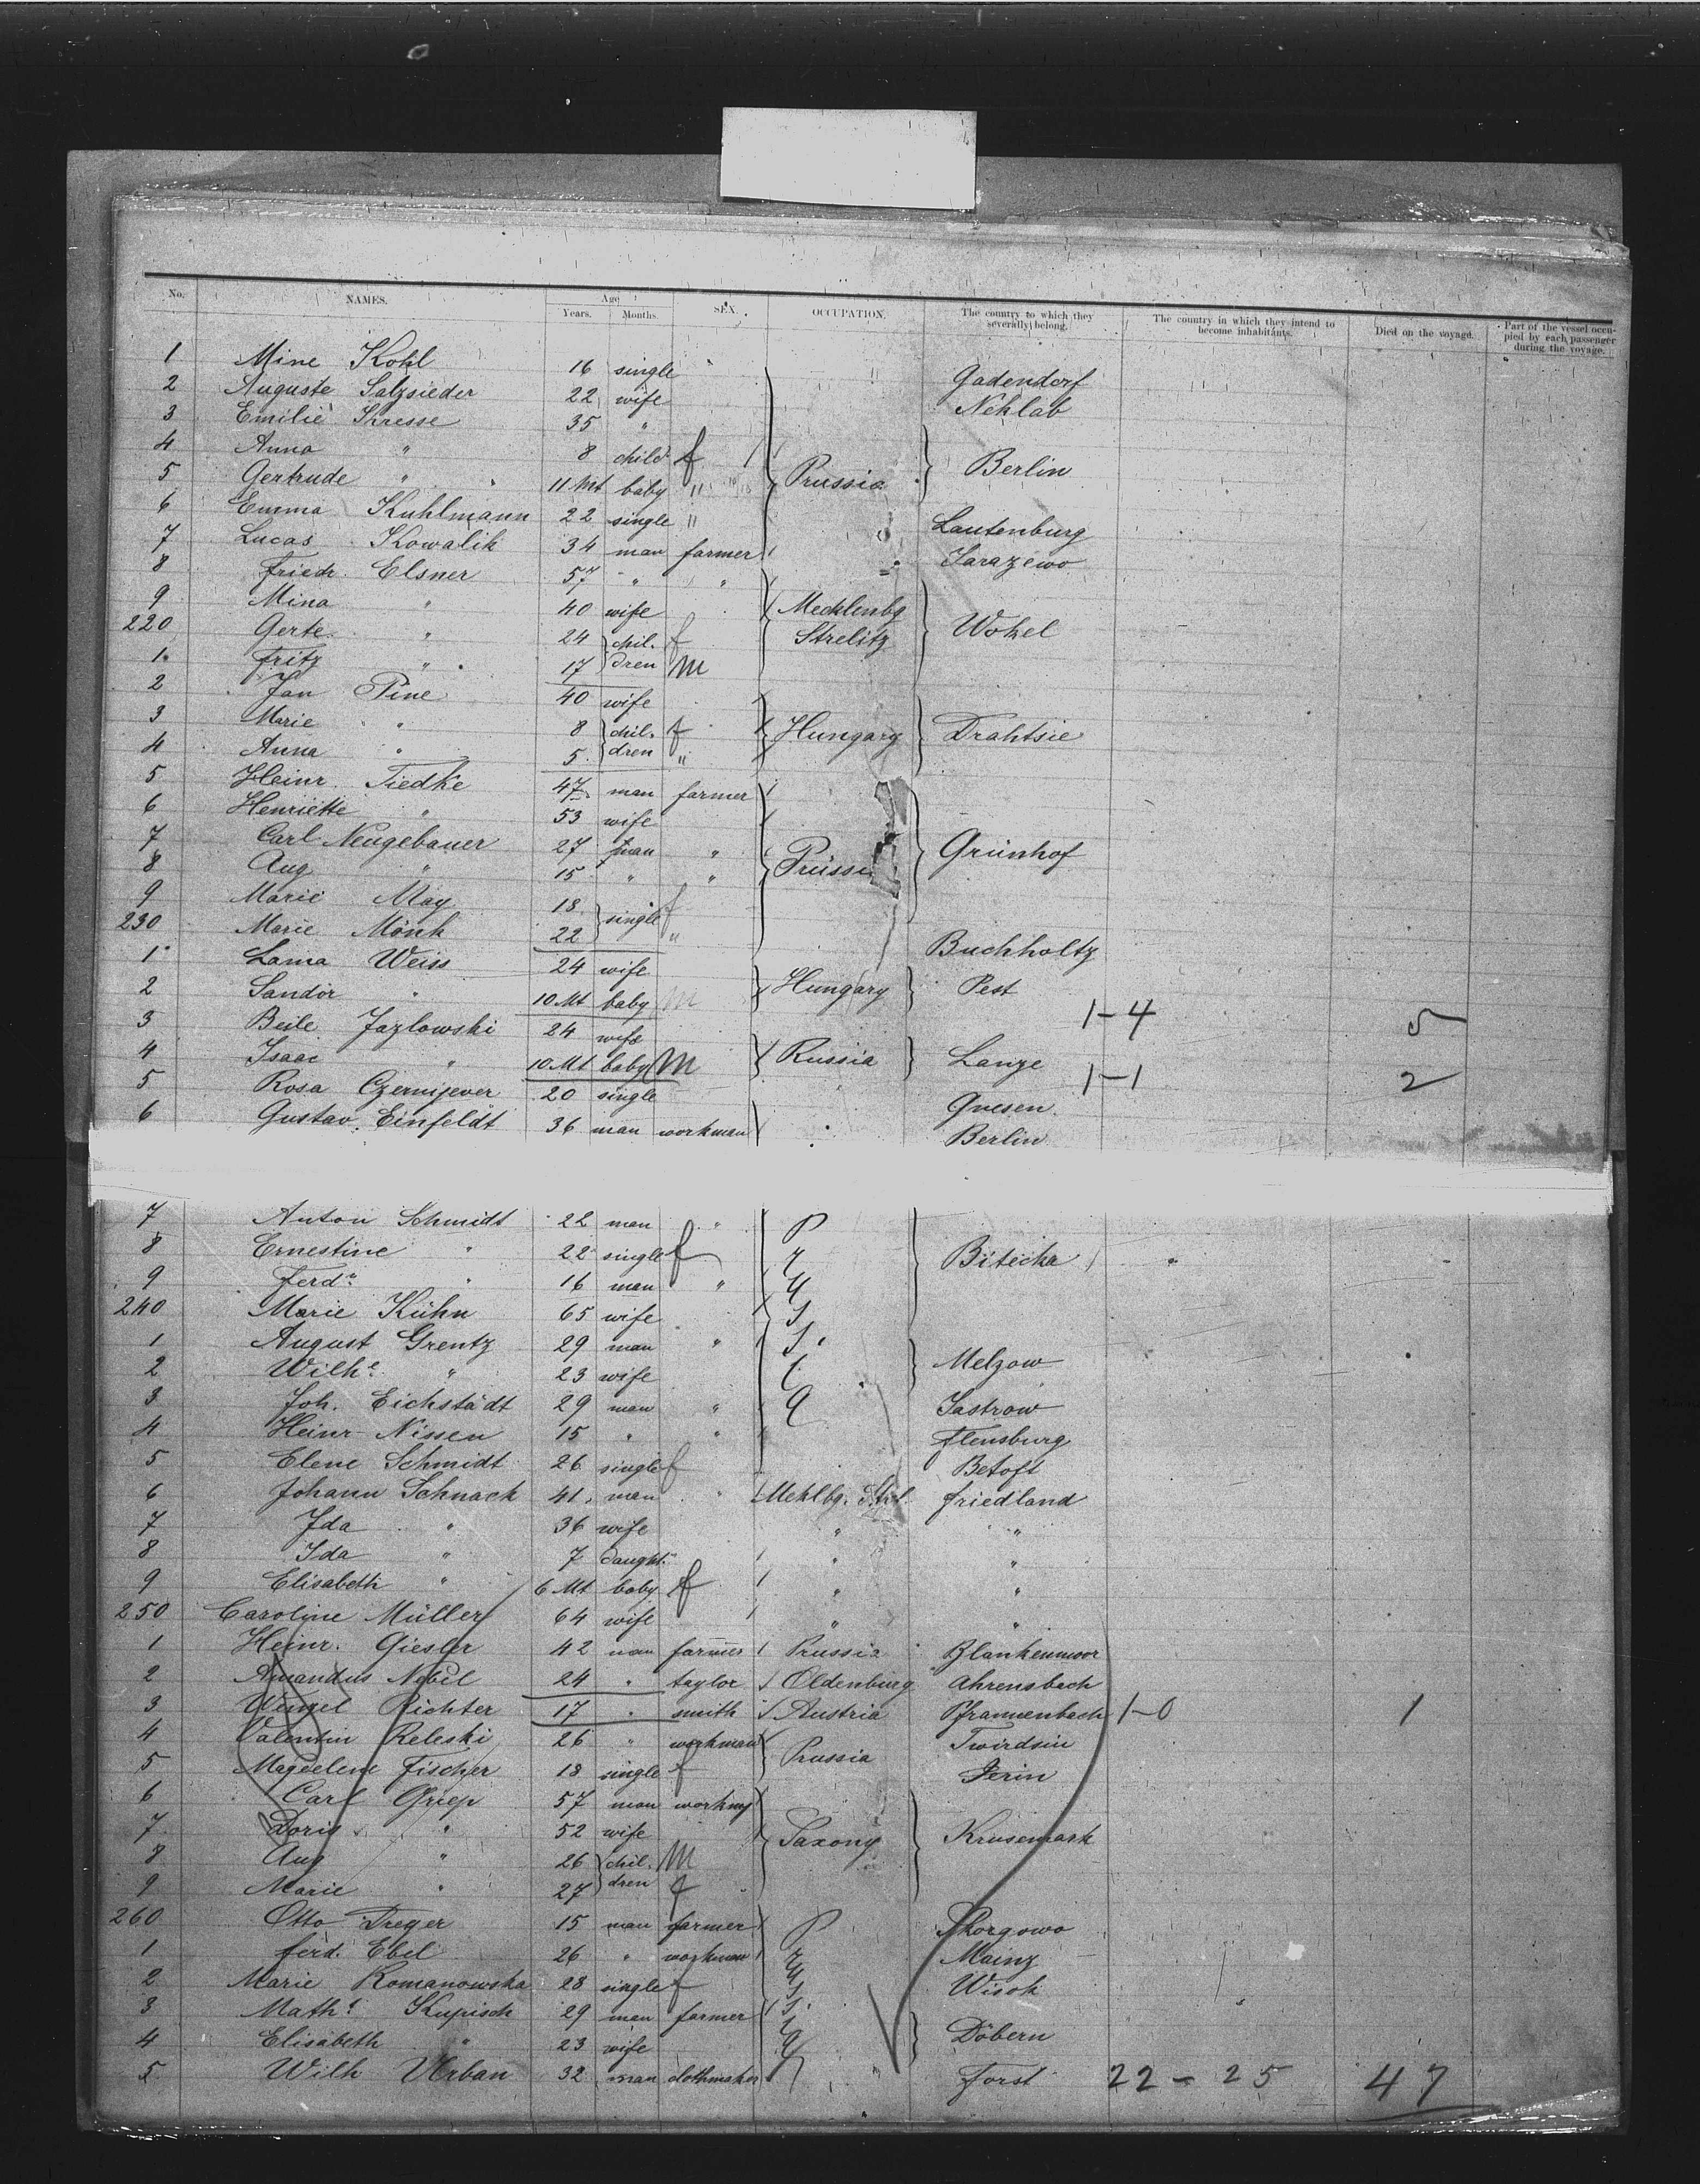 No. NAMES. Age Years. Months. SEX. OCCUPATION. The country to which they severally belong. The country in which they intend to become inhabitants. Died on the voyage. Part of the vessel occupied by each passenger during the voyage.
1 Mine Kohl 16 single Gadendorf
2 Auguste Salzsieder 22 wife Nehlab
3 Emilie Kresse 35 "
4 Anna " 8 child f Berlin
5 Gertrude " 11 Mt baby " Prussia
6 Emma Kuhlmann 22 single " Lautenburg
7 Lucas Kowalik 34 man farmer Jarazewo
8 Friedr. Elsner 57 " "
9 Mina " 40 wife Mecklenbg
220 Gerte " 24 chil- f Strelitz Wokel
1 Fritz " 17 dren M
2 Jan Pine 40 wife
3 Marie " 8 chil- f Hungary Drahtsie
4 Anna " 5 dren "
5 Heinr. Tiedke 47 man farmer
6 Henriette " 53 wife
7 Carl Neugebauer 27 man " Grünhof
8 Aug " 15 " " Prussi
9 Marie May 18 single f
230 Marie Mönk 22 " Buchholtz
1 Lama Weiss 24 wife
2 Sandor " 10 Mt baby M Hungary Pest
1-4 5
3 Beile Jazlowski 24 wife
4 Isaac " 10 Mt baby M Russia Lanze
1-1 2
5 Rosa Czernijever 20 single Gnesen
6 Gustav Einfeldt 36 man workman Berlin
7 Anton Schmidt 22 man " P
8 Ernestine " 22 single f r Bitecha
9 Ferd. " 16 man " u
240 Marie Kühn 65 wife s
1 August Grentz 29 man " s
2 Wilhe " 23 wife i Melzow
3 Joh. Eichstädt 29 man " a Jastrow
4 Heinr Nissen 15 " " Flensburg
5 Elene Schmidt 26 single f Betoft
6 Johann Schnack 41 man " Meklbg. Strl. Friedland
7 Ida " 36 wife " "
8 Ida " 7 daught. " "
9 Elisabeth " 6 Mt baby f " "
250 Caroline Müller 64 wife " "
1 Heinr. Giesler 42 man farmer Prussia Blankenmoor
2 Amandus Nebel 24 " taylor Oldenburg Ahrensbach
3 Wenzel Richter 17 " smith Austria Pframenbach 1-0 1
4 Valentin Releski 26 " workman Twirdsin
5 Magdelene Fischer 18 single f Prussia Jerin
6 Carl Griep 57 man workmg
7 Doris " 52 wife Saxony Krusemark
8 Aug " 26 chil- M
9 Marie " 27 dren f
260 Otto Treger 15 man farmer P Skorgowo
1 Ferd. Ebel 26 " workman r Mainz
2 Marie Romanowska 28 single f u Wisok
3 Mathe Kupisch 29 man farmer s
4 Elisabeth " 23 wife Döbern
5 Wilh Urban 32 man clothmaker " Forst 22-25 47